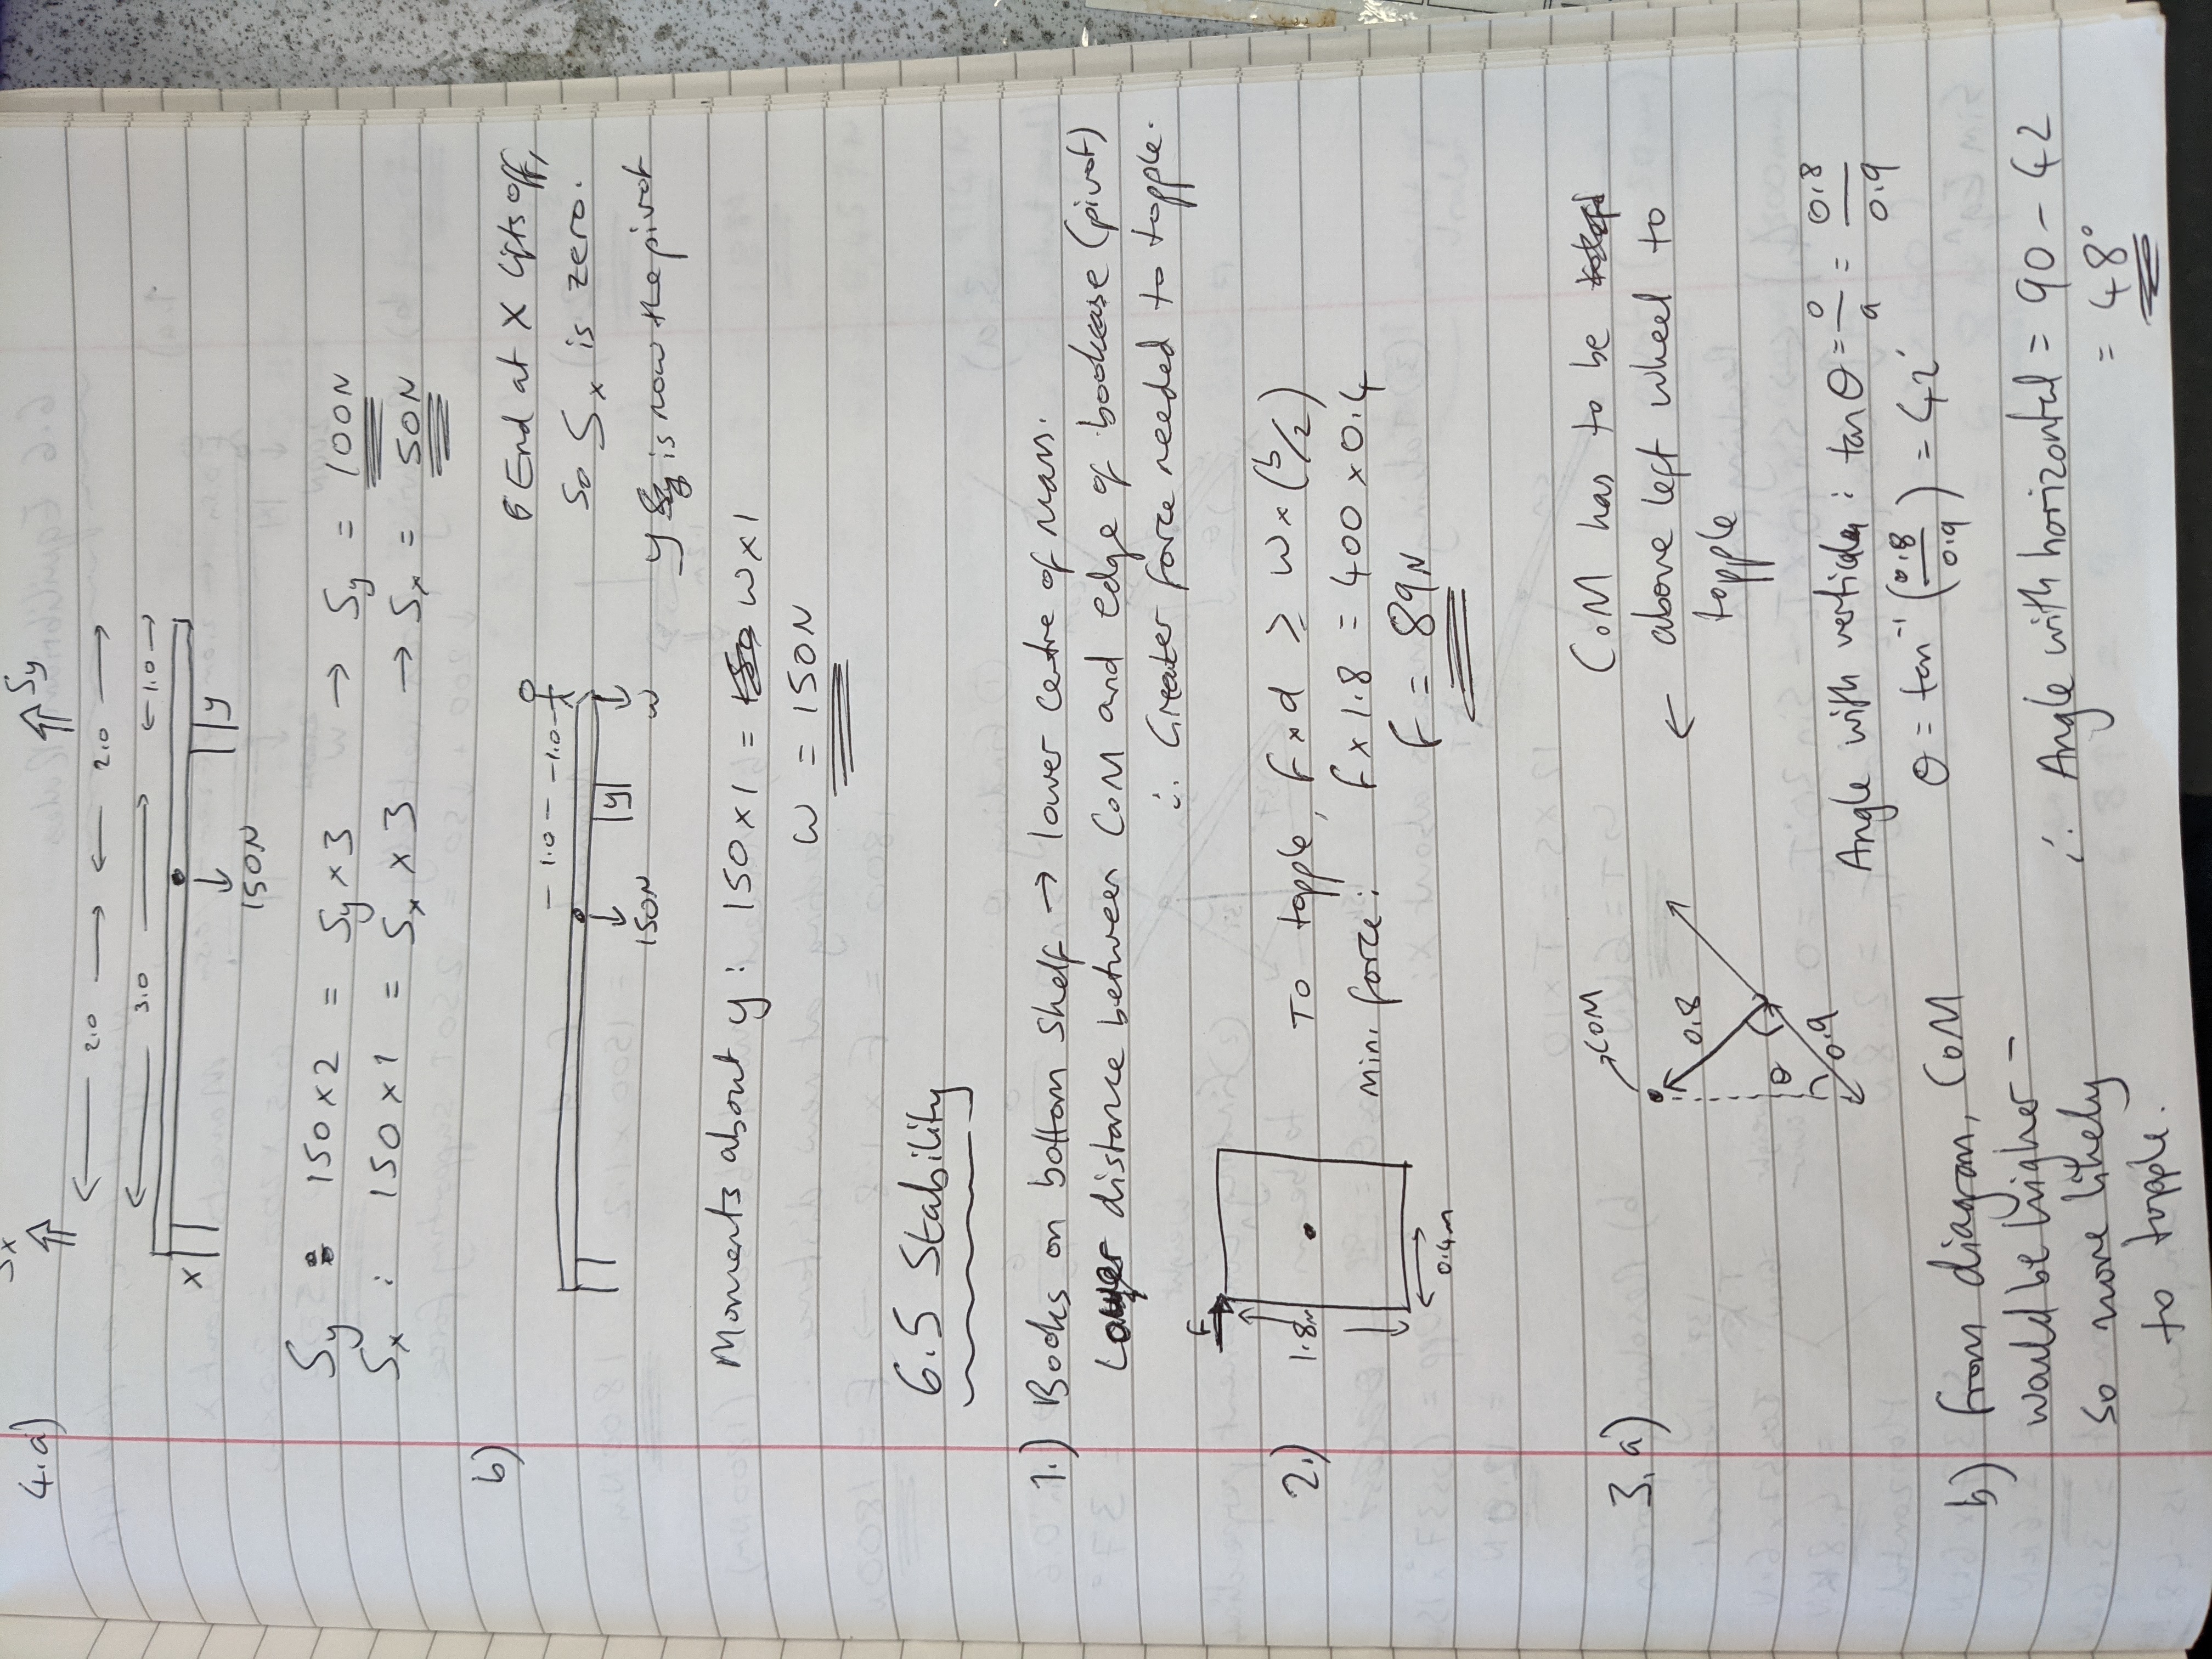 4.a)
Sx
Sy
2.0
2.0
3.0
1.0
x
y
150N
Sy : 150 x 2 = Sy x 3 → Sy = 100N
Sx : 150 x 1 = Sx x 3 → Sx = 50N
b)
1.0 1.0
y
150N
w
End at X lifts off,
so Sx is zero.
y is now the pivot
Moments about y : 150 x 1 = w x 1
w = 150N
6.5 Stability
1.) Books on bottom shelf → lower centre of mass.
distance between CoM and edge of bookcase (pivot)
∴ Greater force needed to topple.
2.)
F
1.8m
0.4m
To topple, F x d ≥ w x (b/2)
min. force: F x 1.8 = 400 x 0.4
F = 89N
3.a)
COM
0.8
θ
0.9
CoM has to be
← above left wheel to
topple
Angle with vertical : tan θ = o/a = 0.8/0.9
θ = tan⁻¹ (0.8/0.9) = 42°
∴ Angle with horizontal = 90 - 42
= 48°
b) From diagram, CoM
would be higher -
so more likely
to topple.